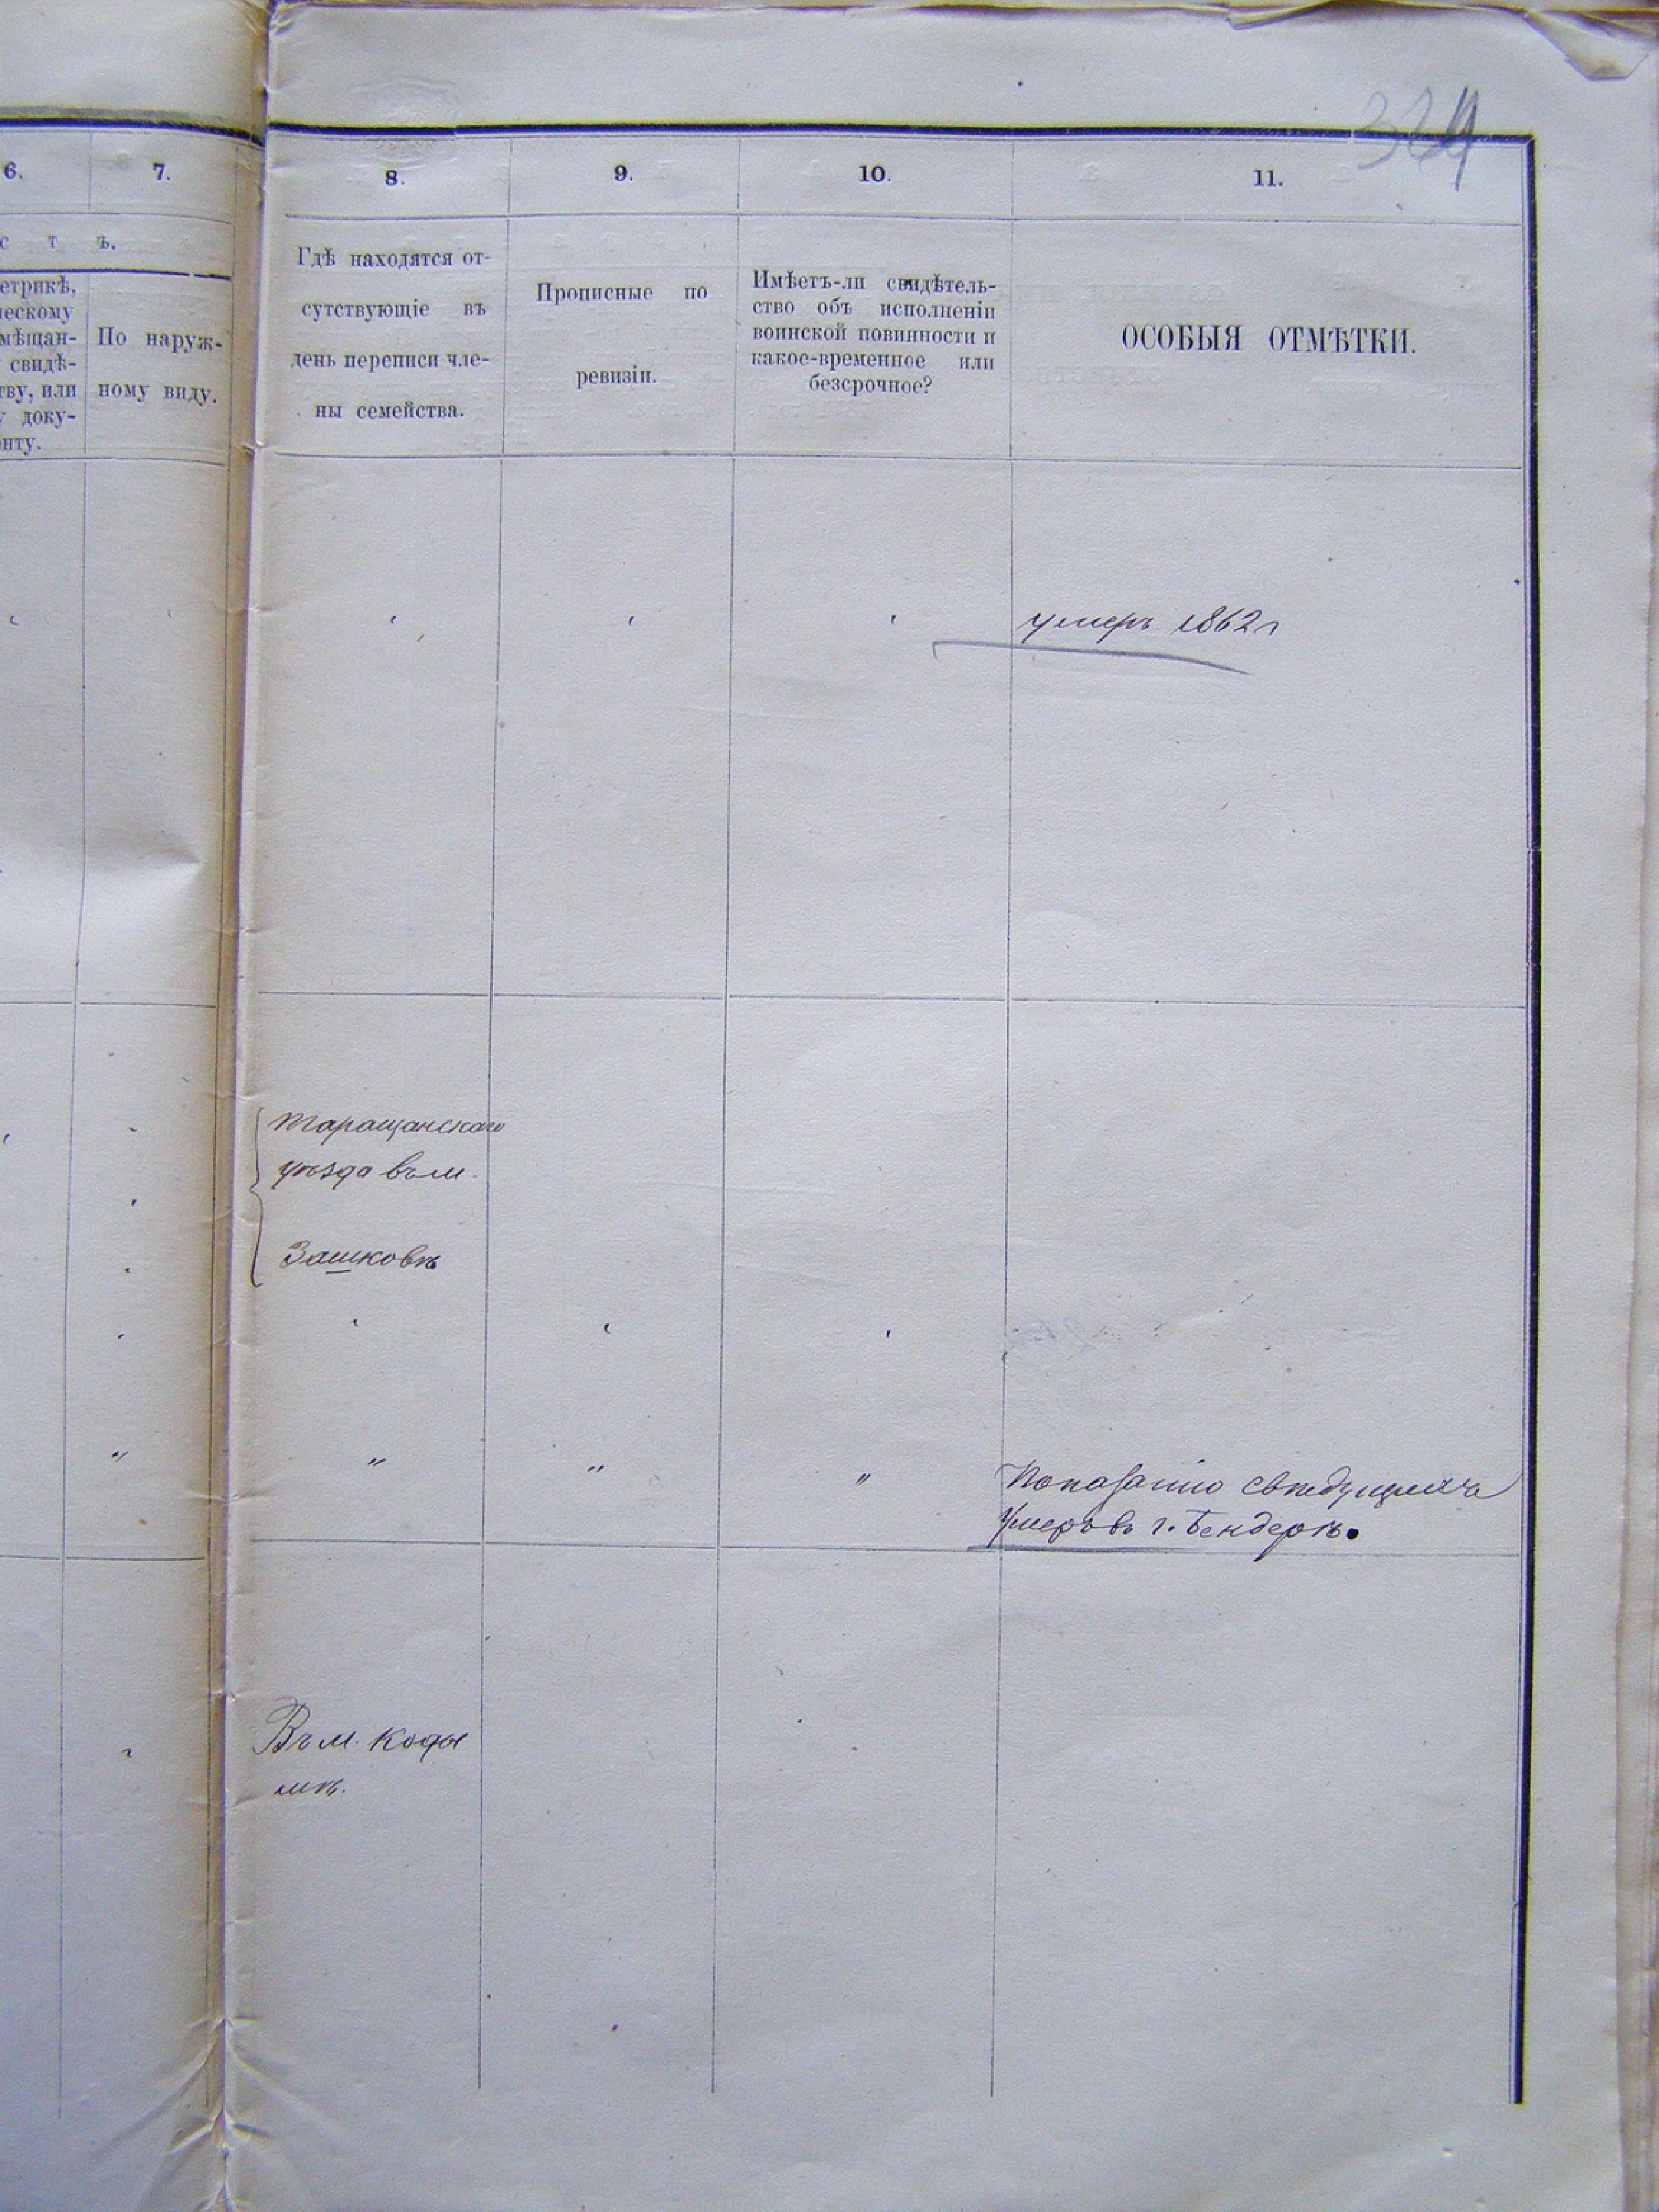 324
6.
7.
8.
9.
10.
11.
с т ь.
етрикѣ,
ческому
мѣщан-
свидѣ-
тву, или
у доку-
енту.
По наруж-
ному виду.
Гдѣ находятся от-
сутствующіе въ
день переписи чле-
ны семейства.
Прописные по
ревизіи.
Имѣетъ-ли свидѣтель-
ство объ исполненіи
воинской повинности и
какое-временное или
безсрочное?
ОСОБЫЯ ОТМѢТКИ.
умеръ 1862 г
Таращанскаго
уѣзда въ м.
Зашковѣ
" " " "
Показанію свѣдущихъ
Умеръ въ г. Бендерѣ.
Въ м. Коды
мѣ.